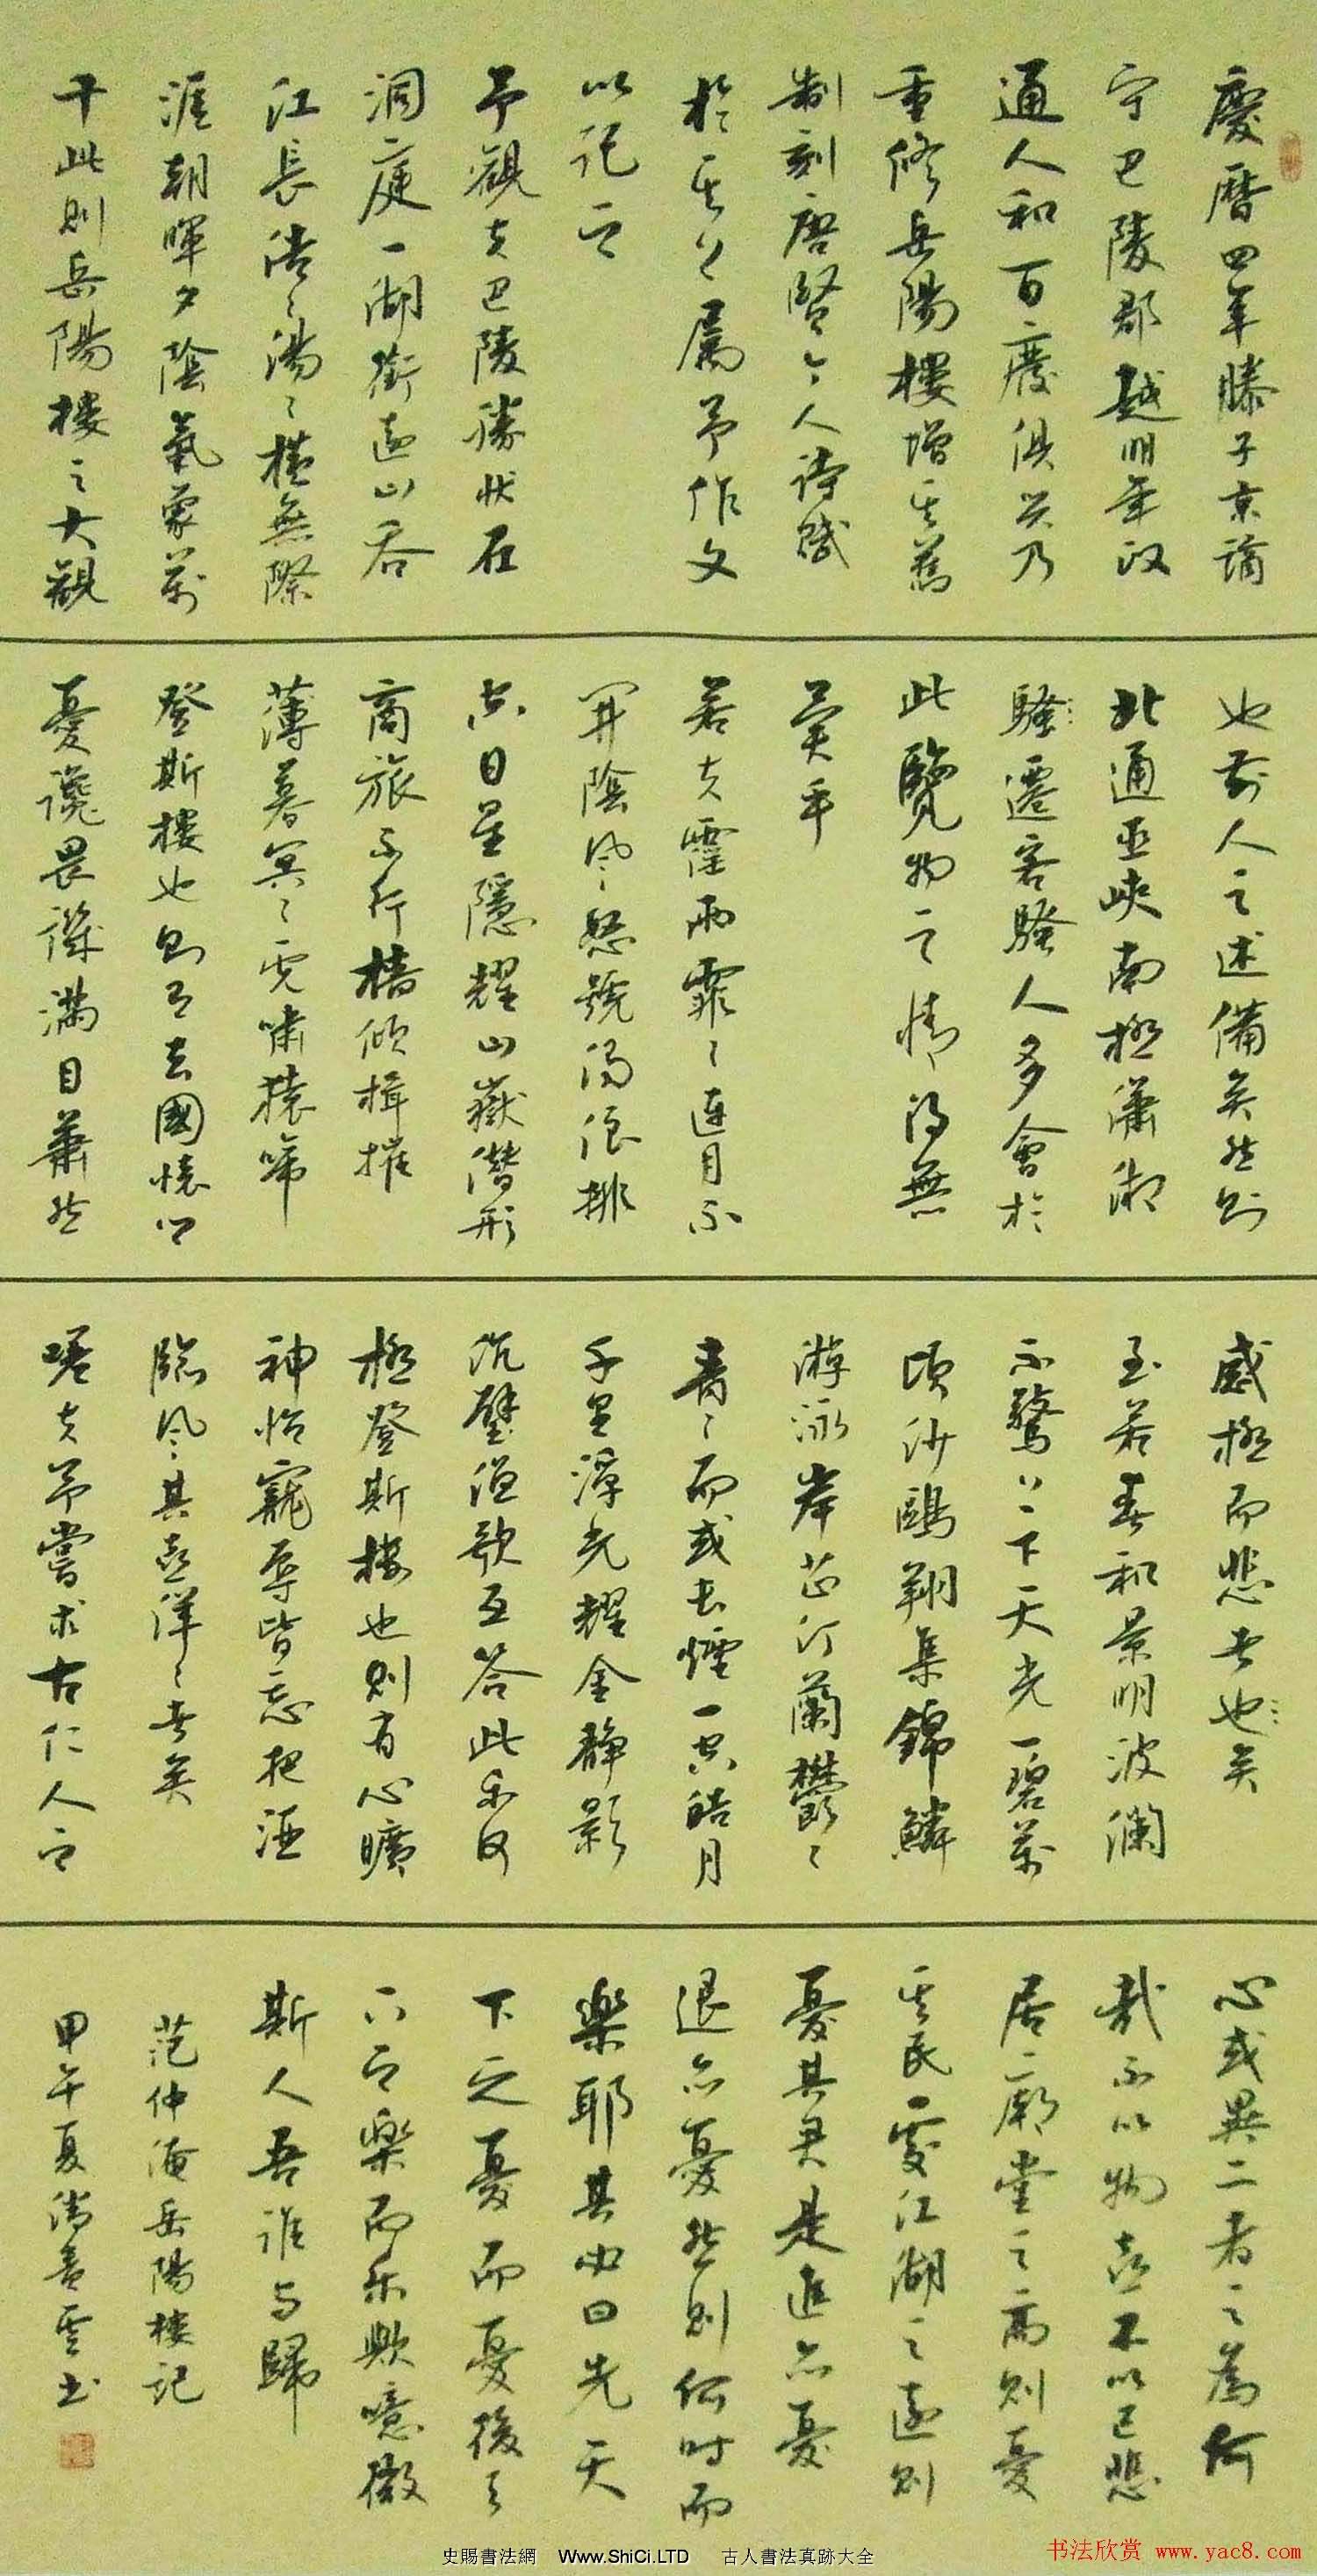 慶曆四年滕子京謫
守巴陵郡越明年政
通人和百廢俱興乃
重修岳陽樓增其舊
制刻唐賢今人詩賦
於其上屬予作文
以記之
予觀夫巴陵勝狀在
洞庭一湖銜遠山吞
江長浩〻湯〻橫無際
涯朝暉夕陰氣象萬
千此則岳陽樓之大觀
也前人之述備矣然則
北通巫峽南極瀟湘
騷遷客騷人多會於
此覽物之情得無
異乎
若夫霪雨霏〻連月不
開陰風怒號濁浪排
空日星隱耀山嶽潛形
商旅不行檣傾楫摧
薄暮冥〻虎嘯猿啼
登斯樓也則有去國懷鄉
憂讒畏譏滿目蕭然
感極而悲者也矣
至若春和景明波瀾
不驚上下天光一碧萬
頃沙鷗翔集錦鱗
游泳岸芷汀蘭鬱〻
青〻而或長煙一空皓月
千里浮光耀金靜影
沉璧漁歌互答此樂何
極登斯樓也則有心曠
神怡寵辱皆忘把酒
臨風其喜洋〻者矣
嗟夫予嘗求古仁人之
心或異二者之為何
哉不以物喜不以己悲
居廟堂之高則憂
其民處江湖之遠則
憂其君是進亦憂
退亦憂然則何時而
樂耶其必曰先天
下之憂而憂後天
下之樂而樂歟噫微
斯人吾誰與歸
范仲淹岳陽樓記
甲午夏 青雲書
史賜書法網 Www.ShiCi.LTD 古人書法真跡大全
书法欣赏 www.yac8.com